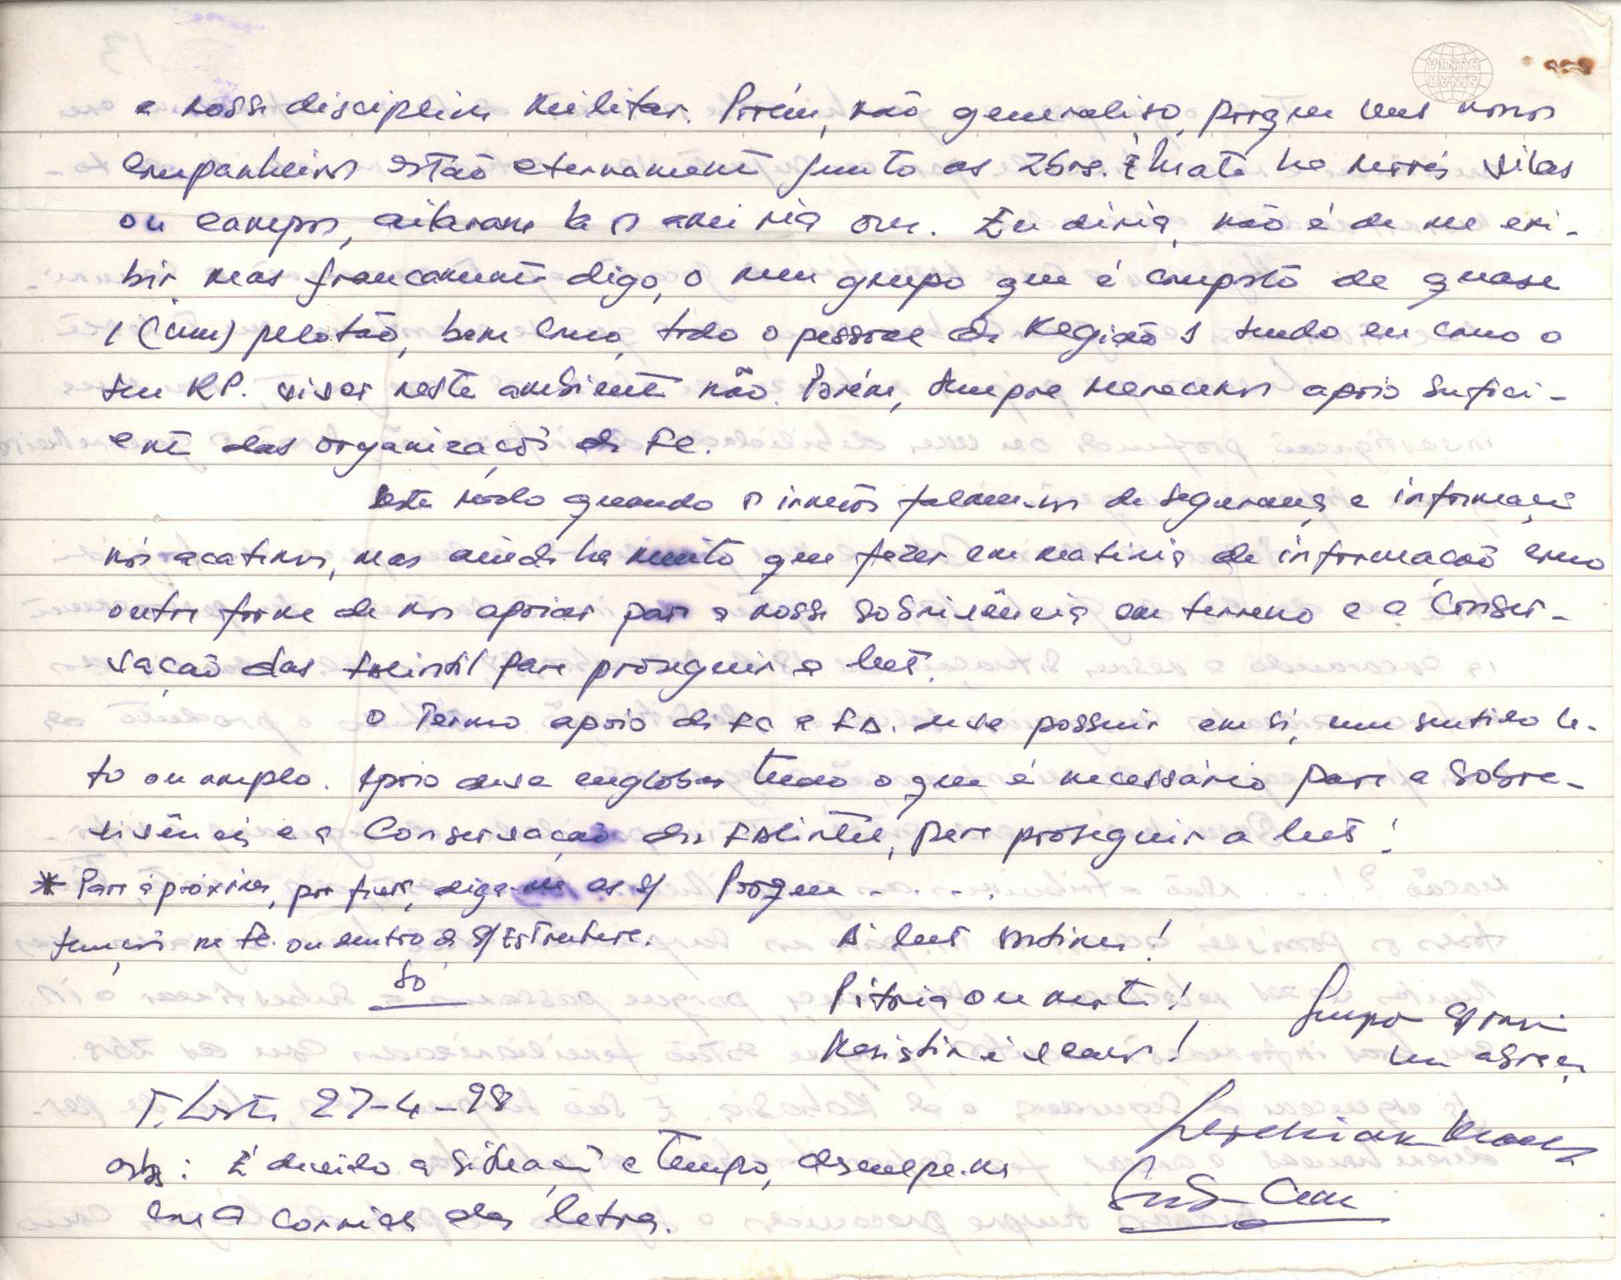 a nossa disciplina militar. Porém, não generaliso, porque uns nossos
companheiros estão eternamente junto as zbrs. É mato ha nessas vilas
ou campos, a maioria Eu diria, não é de me exi-
bir mas francamente digo, o meu grupo que é composto de quase
1 (um) pelotão, bem como, todo o pessoal da Região 1 sendo eu como o
seu RP. viver neste ambiente não. Porém, sempre merecemos apoio sufici-
ente das organizações da FC.
Deste modo quando os irmãos falam-nos de segurança e informação
nós acatamos, mas ainda ha muito que fazer em matéria de informação como
outra forma de nos apoiar para a nossa sobrivivência em terreno e a Conser-
vação das Falintil para proseguir a luta.
O Termo apoio da FC e FD. deve possuir em si, um sentido la-
to ou amplo. Apoio deve englobar tudo o que é necessário para a sobre-
vivência e a Conservação das Falintil, para proseguir a luta!
* Para a próxima, por favor, diga-me as s/ Porque - . - . - .
funções na FC. ou dentro da s/ Estrutura. A luta continua!
Só
Pátria ou morte!
Resistir é vencer! Grupo
Um abraço
T. Leste, 27-4-98
obs: É devido a situação e tempo, desculpe-me
com a corrida da letra.